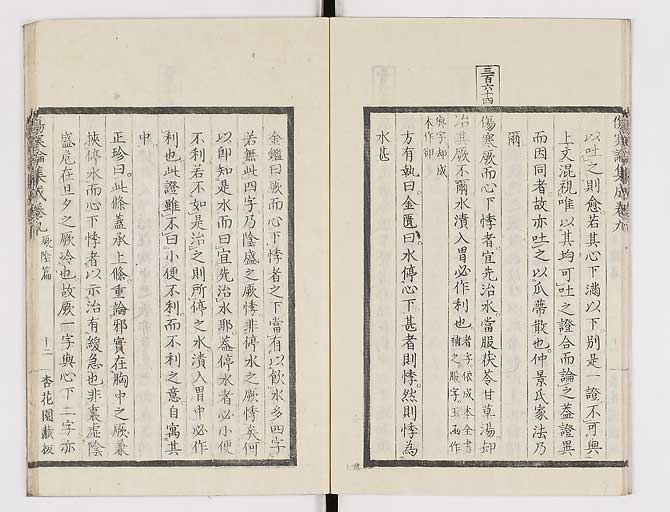 三百六十四
傷寒論集成卷九
以吐之則愈若其心下滿以下別是一證不可與
上文混視唯以其均可吐之證合而論之蓋證異
而因同者故亦吐之以瓜蒂散也仲景氏家法乃
爾
傷寒厥而心下悸者宜先治水當服茯苓甘草湯却
治其厥不爾水漬入胃必作利也
者字依成本全書
補之服字玉函作
與字却成
本作卻
方有執曰金匱曰水停心下甚者則悸然則悸為
水甚
金鑑曰厥而心下悸者之下當有以飲水多四字
若無此四字乃陰盛之厥悸非停水之厥悸矣何
以即知是水而曰宜先治水耶蓋停水者必小便
不利若不如是治之則所停之水漬入胃中必作
利也此證雖不曰小便不利而不利之意自寓其
中
正珍曰此條蓋承上條重論邪實在胸中之厥兼
挾停水而心下悸者以示治有緩急也非裏虛陰
盛危在旦夕之厥冷也故厥一字與心下二字亦
傷寒論集成卷九 厥陰篇 十二 杏花園藏板